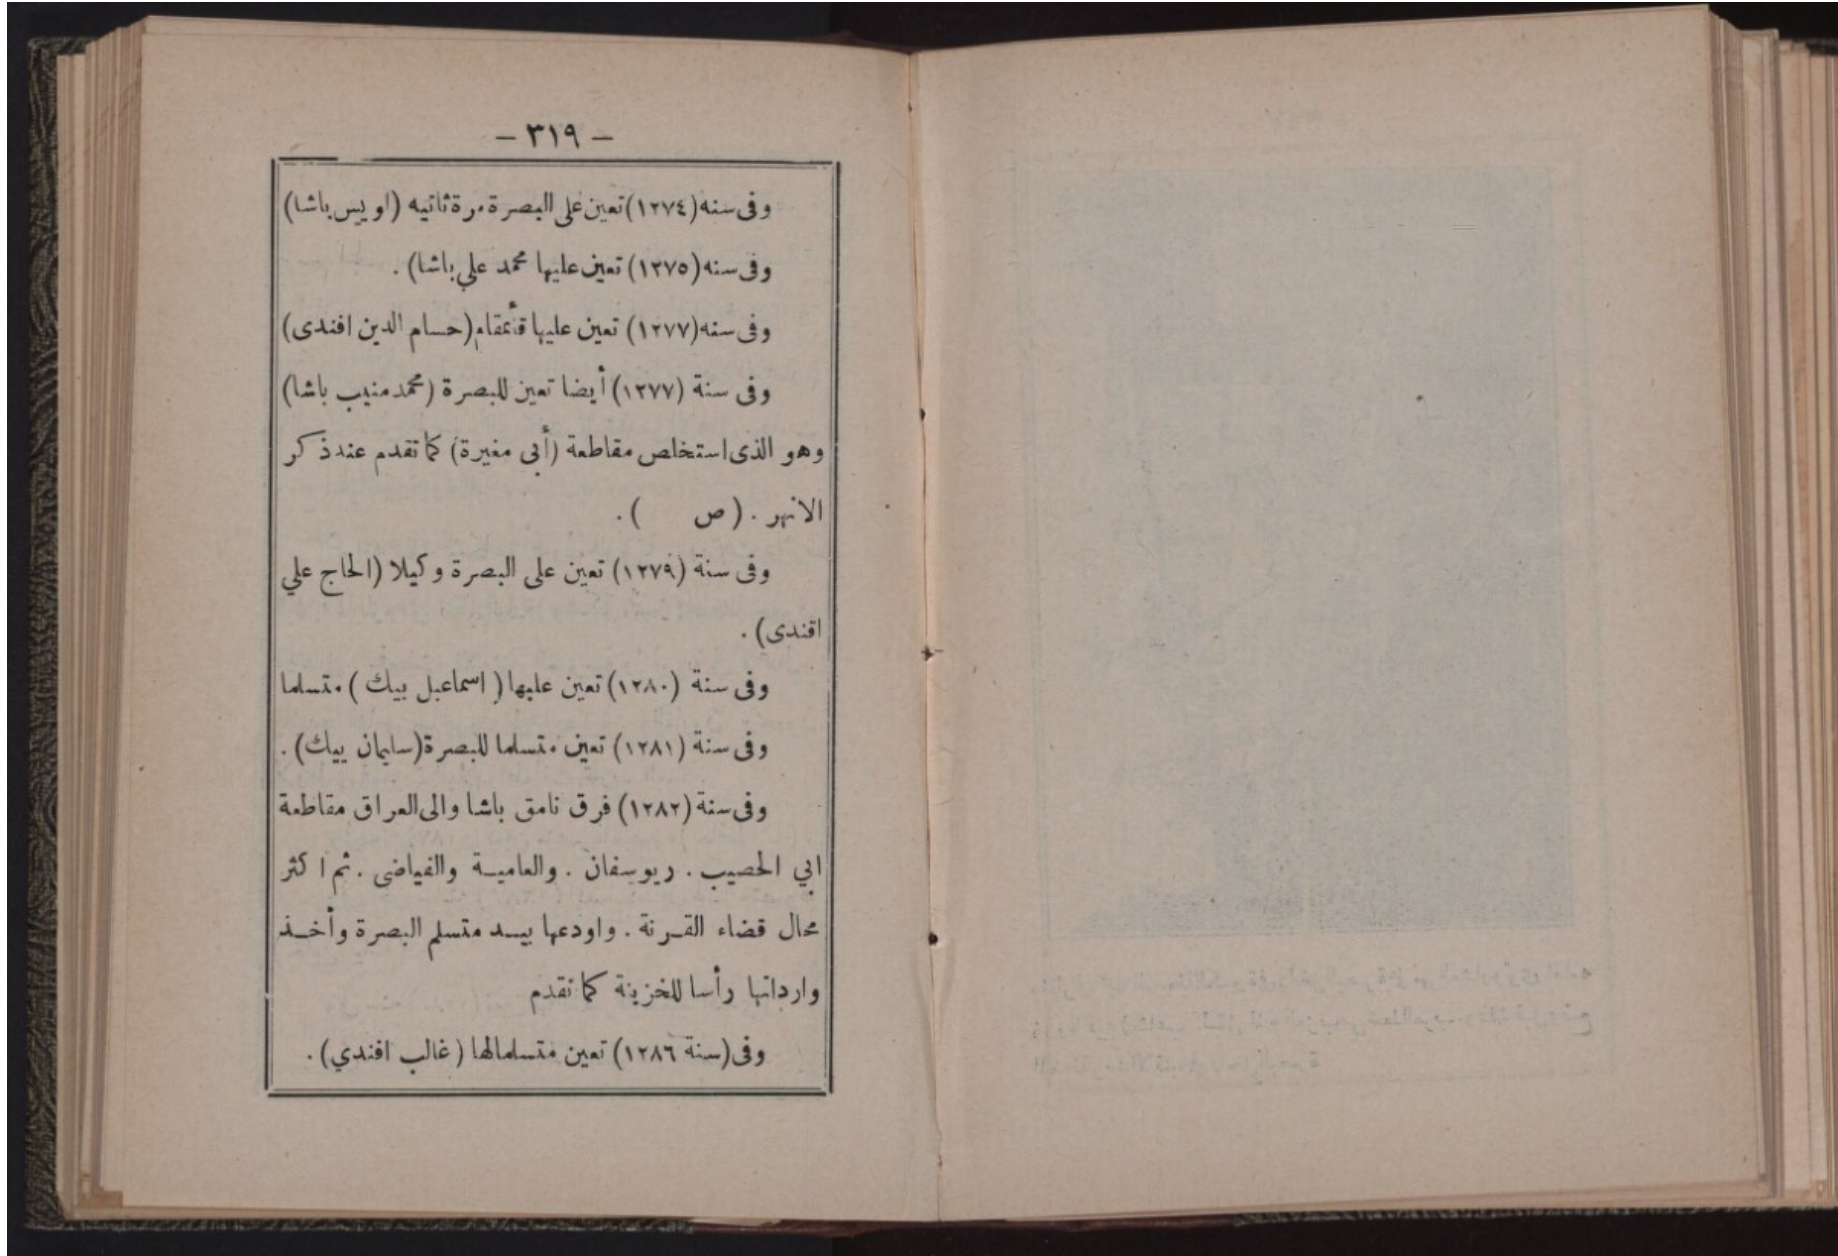 — ٣١٩ —
وفى سنه (١٢٧٤) تعين على البصرة مرة ثانيه (اويس باشا)
وفى سنه (١٢٧٥) تعين عليها محمد علي باشا) .
وفى سنه (١٢٧٧) تعين عليها قأمقام (حسام الدين افندى)
وفى سنة (١٢٧٧) أيضا تعين للبصرة (محمد منيب باشا)
وهو الذى استخلص مقاطعة (أبى مغيرة) كما تقدم عند ذكر
الانهر . ( ص      ) .
وفى سنة (١٢٧٩) تعين على البصرة وكيلا (الحاج علي
افندى) .
وفى سنة (١٢٨٠) تعين عليها ( اسماعيل بيك ) متسلما
وفى سنة (١٢٨١) تعين متسلما للبصرة (سليمان بيك) .
وفى سنة (١٢٨٢) فرق نامق باشا والى العراق مقاطعة
ابي الخصيب . ريوسفان . والعاميـة والفياضى . ثم اكثر
محال قضاء القـرنة . واودعها بيـد متسلم البصرة وأخـذ
وارداتها رأسا للخزينة كما تقدم
وفى (سنة ١٢٨٦) تعين متسلمالها (غالب افندي) .